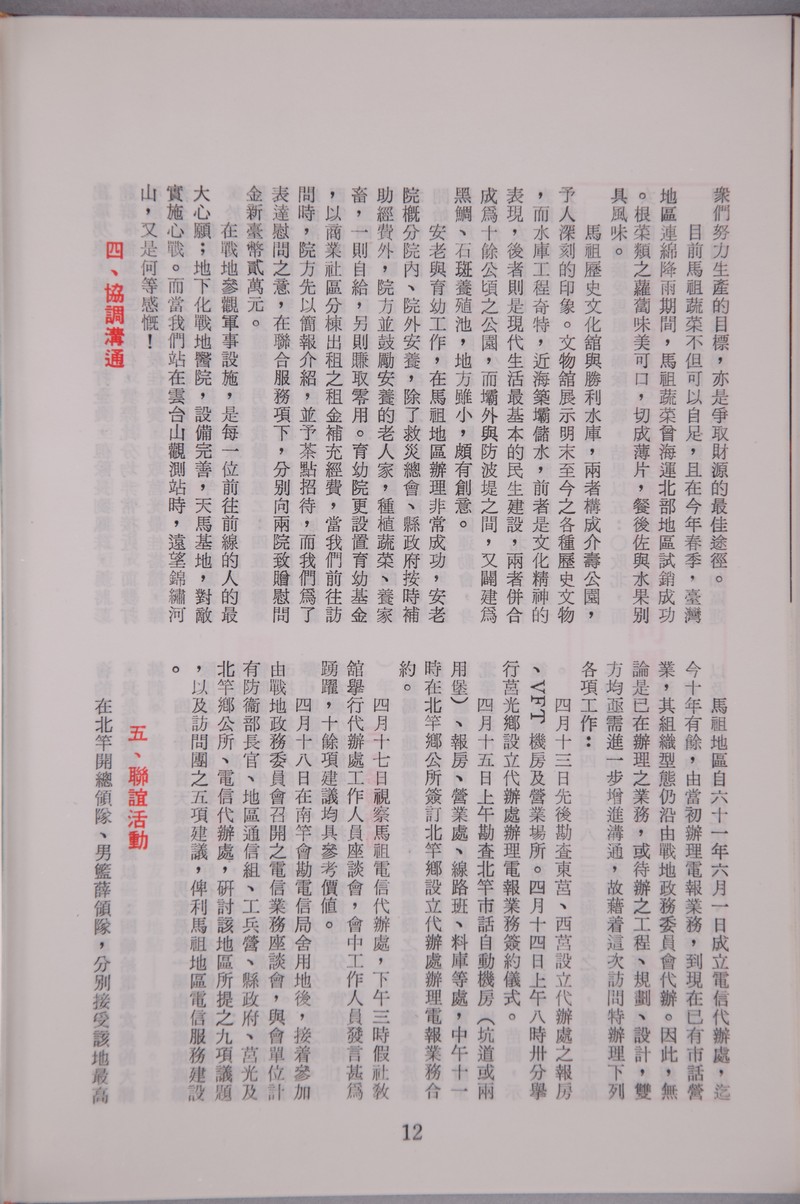 衆們努力生產的目標，亦是爭取財源的最佳途徑。
目前馬祖蔬菜不但可以自足，且在今年春季，臺灣
地區連綿降雨期間，馬祖蔬菜曾海運北部地區試銷成功
。根菜類之蘿蔔味美可口，切成薄片，餐後佐與水果別
具風味。
馬祖歷史文化舘與勝利水庫，兩者構成介壽公園，
予人深刻的印象。文物舘展示明末至今之各種歷史文物
，而水庫工程奇特，近海築壩儲水，前者是文化精神的
表現，後者則是現代生活最基本的民生建設，兩者併合
成爲十餘公頃之公園，而壩外與防波堤之間，又闢建爲
黑鯛、石斑養殖池，地方雖小，頗有創意。
安老與育幼工作，在馬祖地區辦理非常成功，安老
院概分院內、院外安養，除了救災總會、縣政府按時補
助經費外，院方並鼓勵安養的老人家，種植蔬菜、養家
畜，一則自給，另則賺取零用。育幼院更設置育幼基金
，以商業社區分棟出租之租金補充經費，當我們前往訪
問時，院方先以簡報介紹，並予茶點招待，而我們爲了
表達慰問之意，在聯合服務項下，分別向兩院致贈慰問
金新臺幣貳萬元。
在戰地參觀軍事設施，是每一位前往前線的人的最
大心願；地下化戰地醫院，設備完善，天馬基地，對敵
實施心戰。而當我們站在雲台山觀測站時，遠望錦繡河
山，又是何等感慨！
四、協調溝通
馬祖地區自六十一年六月一日成立電信代辦處，迄
今十年有餘，由當初辦理電報業務，到現在已有市話營
業，其組織型態仍沿由戰地政務委員會代辦。因此，無
論是已在辦理之業務，或待辦之工程、規劃、設計，雙
方均亟需進一步增進溝通，故藉着這次訪問特辦理下列
各項工作：
四月十三日先後勘查東莒、西莒設立代辦處之報房
、VFT機房及營業場所。四月十四日上午八時卅分舉
行莒光鄉設立代辦處辦理電報業務簽約儀式。
四月十五日上午勘查北竿市話自動機房（坑道或兩
用堡）、報房、營業處、線路班、料庫等處，中午十一
時在北竿鄉公所簽訂北竿鄉設立代辦處辦理電報業務合
約。
四月十七日視察馬祖電信代辦處，下午三時假社教
舘舉行代辦處工作人員座談會，會中工作人員發言甚爲
踴躍，十餘項建議均具參考價值。
四月十八日在南竿會勘電信局舍用地後，接着參加
由戰地政務委員會召開之電信業務座談會，與會單位計
有防衞部長官、地區通信組、工兵營、縣政府、莒光及
北竿鄉公所、電信代辦處，研討該地區所提之九項議題
，以及訪問團之五項建議，俾利馬祖地區電信服務建設
。
五、聯誼活動
在北竿開總領隊、男籃薛領隊，分別接受該地最高
12